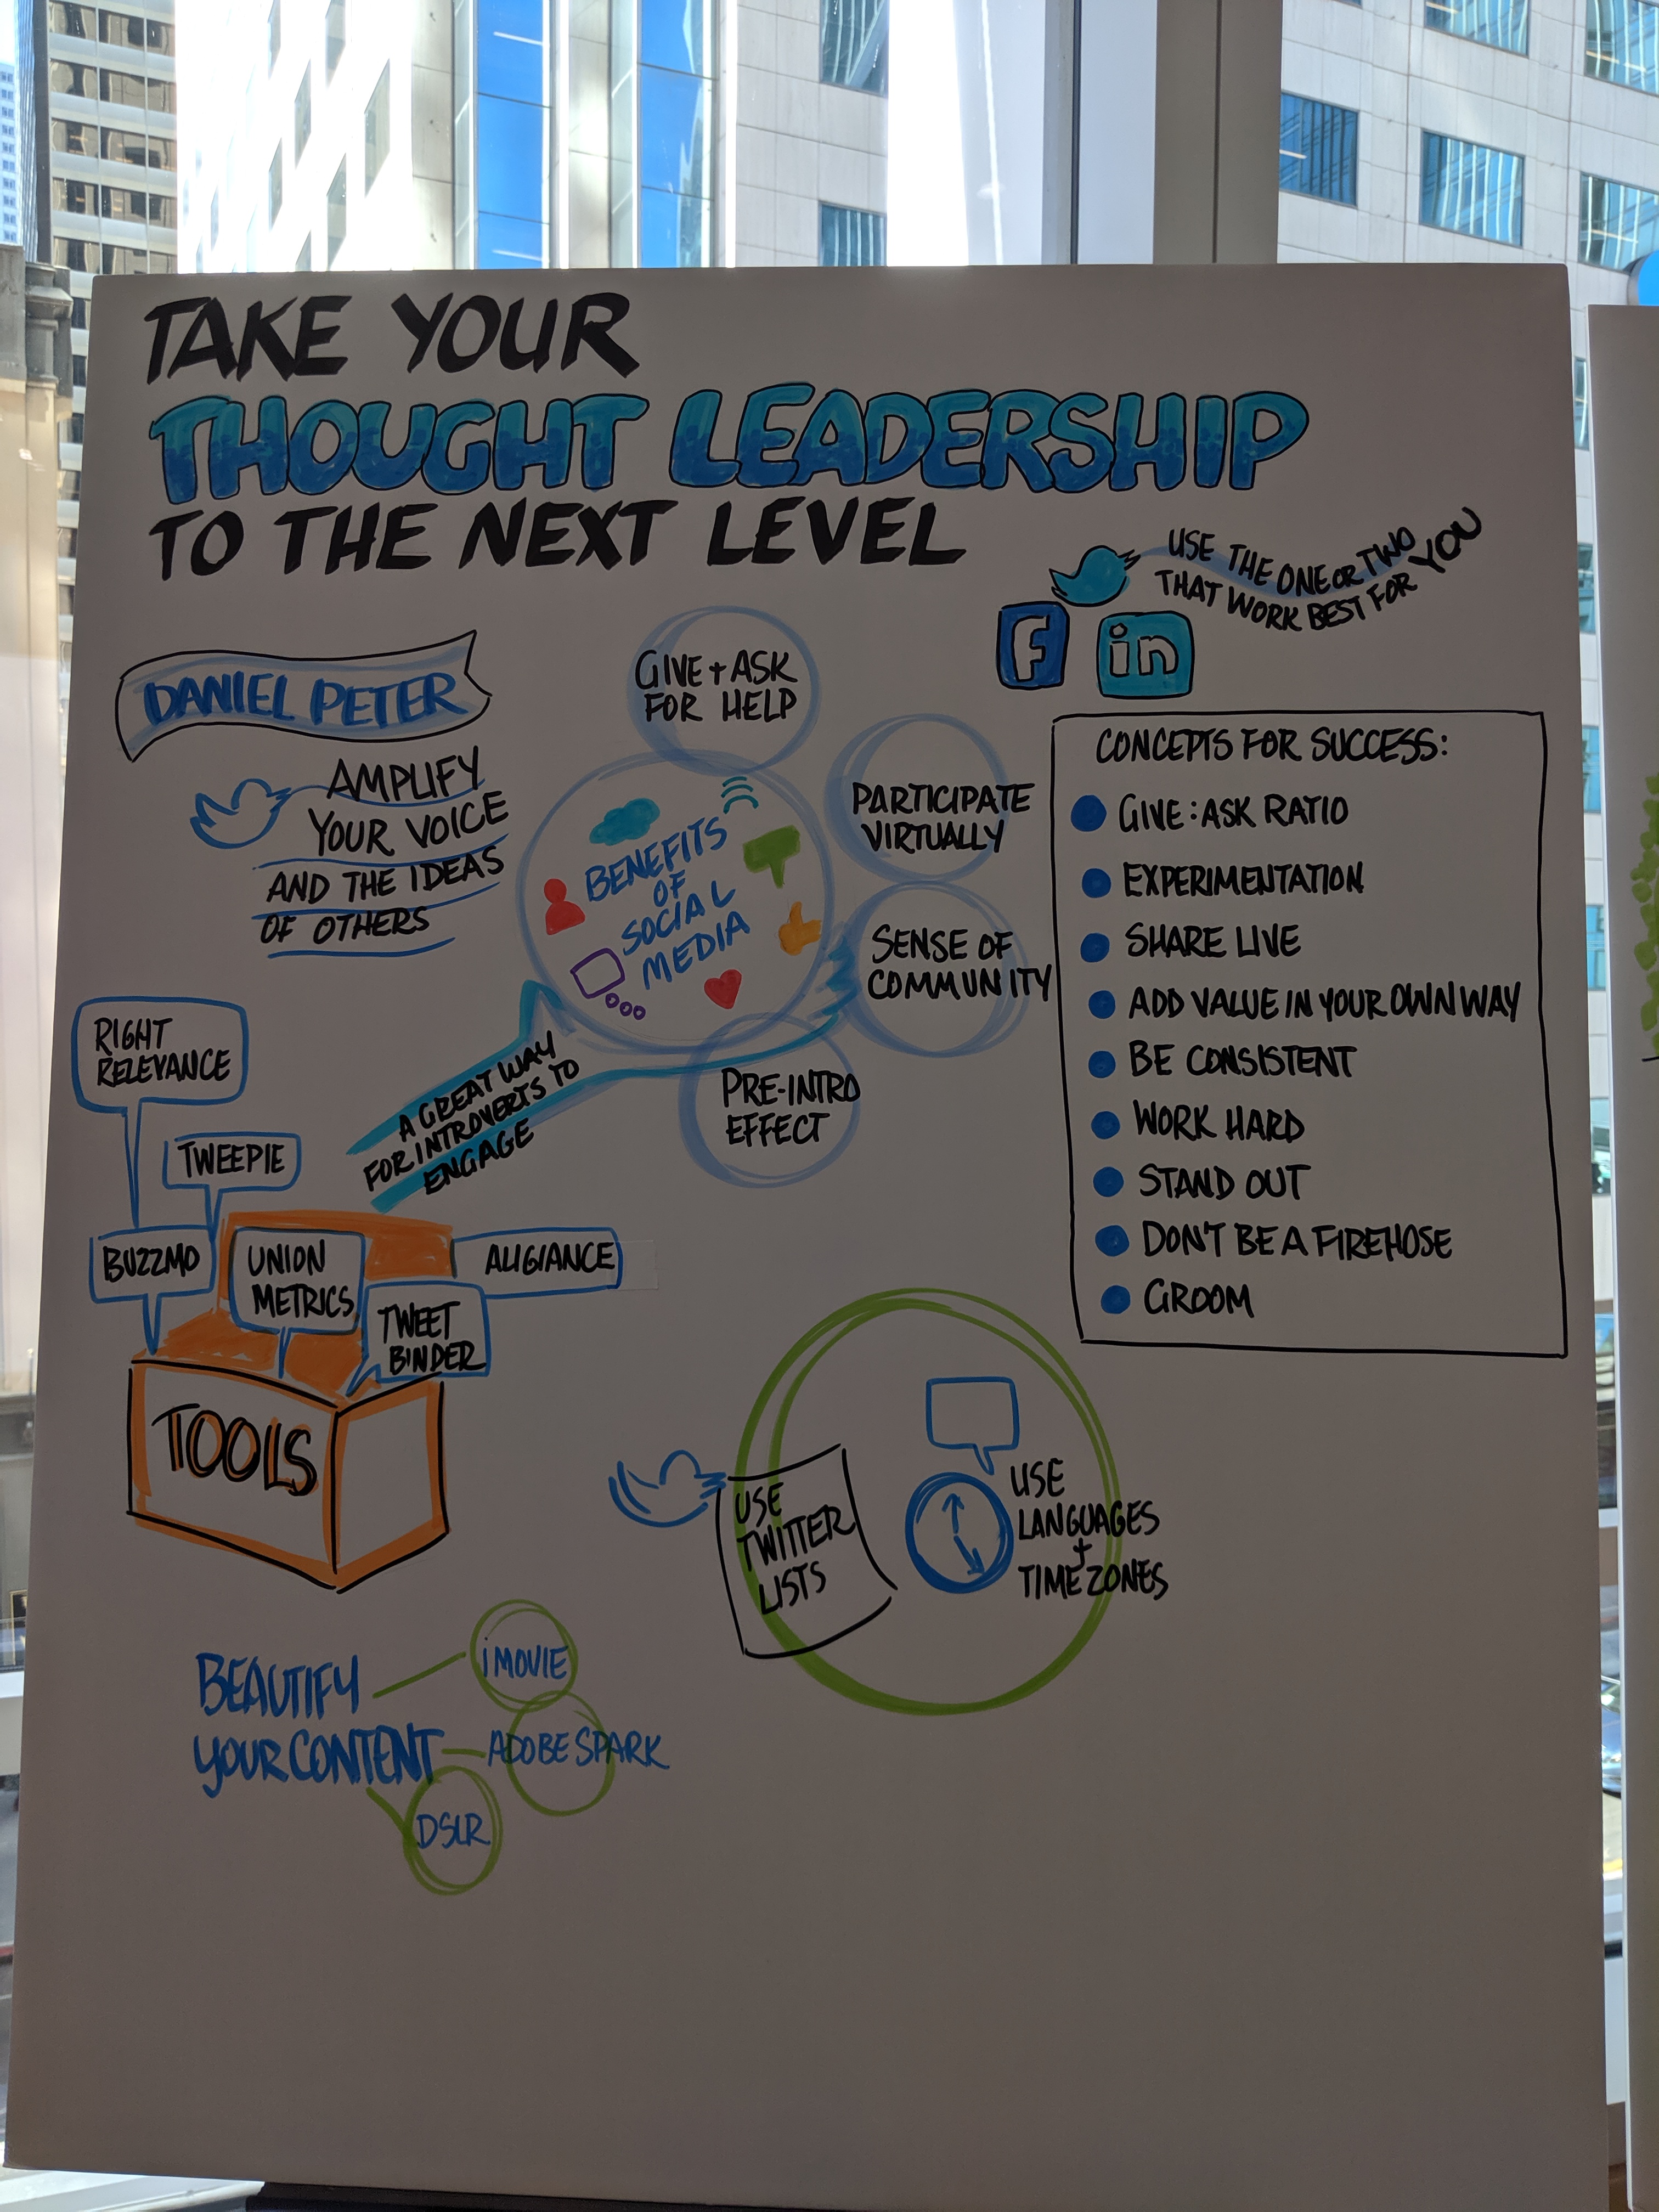 TAKE YOUR
THOUGHT LEADERSHIP
TO THE NEXT LEVEL
USE THE ONE OR TWO
THAT WORK BEST FOR YOU
f
in
DANIEL PETER
AMPLIFY
YOUR VOICE
AND THE IDEAS
OF OTHERS
GIVE + ASK
FOR HELP
PARTICIPATE
VIRTUALLY
SENSE OF
COMMUNITY
PRE-INTRO
EFFECT
BENEFITS
OF
SOCIAL
MEDIA
A GREAT WAY
FOR INTROVERTS TO
ENGAGE
CONCEPTS FOR SUCCESS:
GIVE : ASK RATIO
EXPERIMENTATION
SHARE LIVE
ADD VALUE IN YOUR OWN WAY
BE CONSISTENT
WORK HARD
STAND OUT
DON'T BE A FIREHOSE
GROOM
RIGHT
RELEVANCE
TWEEPIE
BUZZMO
UNION
METRICS
ALIGIANCE
TWEET
BINDER
TOOLS
USE
TWITTER
LISTS
USE
LANGUAGES
+
TIME ZONES
BEAUTIFY
YOUR CONTENT
iMOVIE
ADOBE SPARK
DSLR